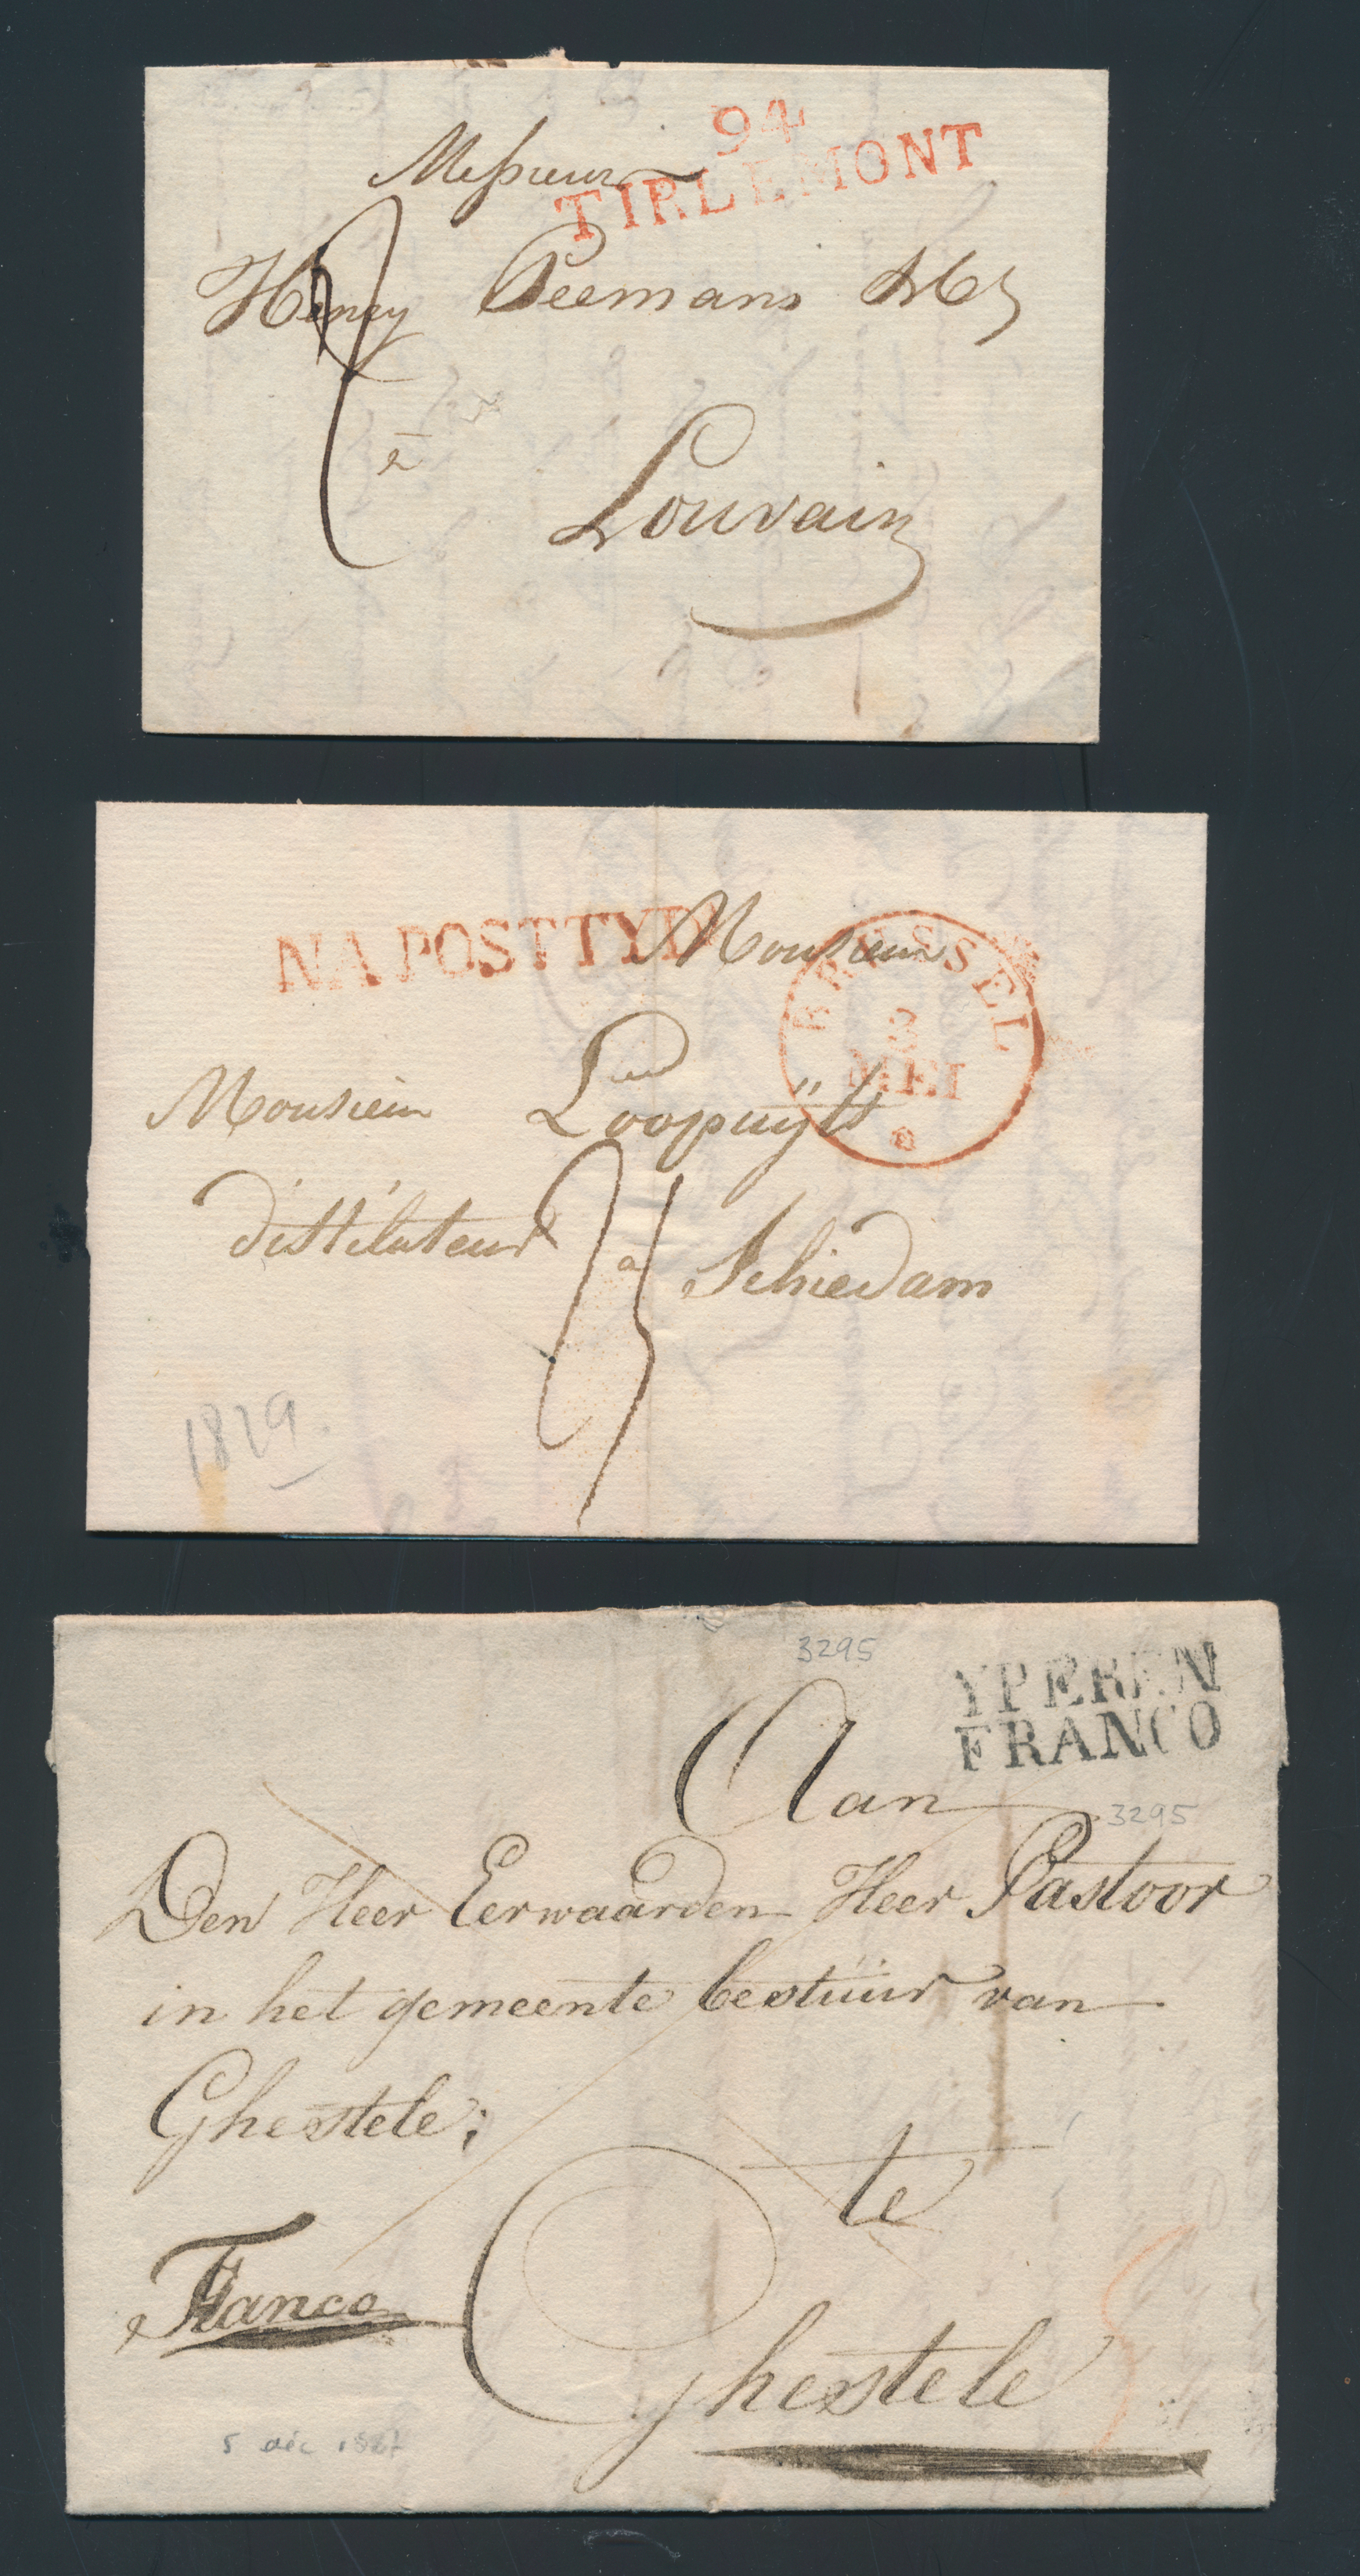 94
TIRLEMONT
Messieurs
Henry Peemans &Cº
2
à
Louvain
NA POSTTYD
BRUSSEL
3
MEI
Monsieur
Monsieur Loopuÿts
distilateur à Schiedam
1829.
3295
YPEREN
FRANCO
Aan
3295
Den Heer Eerwaarden Heer Pastoor
in het gemeente bestuur van
Ghestele;
te
Franco
Ghestele
5 déc 1827